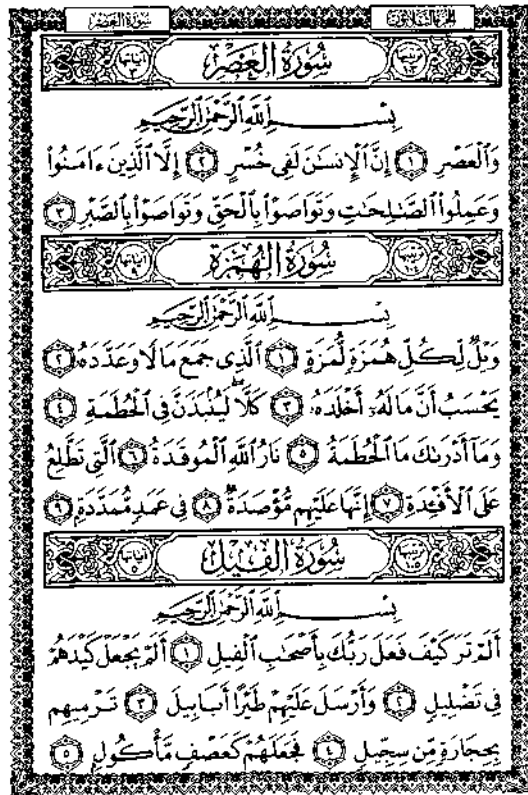 سورة العصر
الجزء الثلاثون
سُورَةُ العَصْرِ
بِسْمِ اللَّهِ الرَّحْمَٰنِ الرَّحِيمِ
وَالْعَصْرِ ١ إِنَّ الْإِنسَٰنَ لَفِي خُسْرٍ ٢ إِلَّا الَّذِينَ ءَامَنُوا
وَعَمِلُوا الصَّٰلِحَٰتِ وَتَوَاصَوْا بِالْحَقِّ وَتَوَاصَوْا بِالصَّبْرِ ٣
سُورَةُ الهُمَزَةِ
بِسْمِ اللَّهِ الرَّحْمَٰنِ الرَّحِيمِ
وَيْلٌ لِّكُلِّ هُمَزَةٍ لُّمَزَةٍ ١ الَّذِي جَمَعَ مَالًا وَعَدَّدَهُ ٢
يَحْسَبُ أَنَّ مَالَهُۥ أَخْلَدَهُ ٣ كَلَّا لَيُنۢبَذَنَّ فِي الْحُطَمَةِ ٤
وَمَا أَدْرَىٰكَ مَا الْحُطَمَةُ ٥ نَارُ اللَّهِ الْمُوقَدَةُ ٦ الَّتِي تَطَّلِعُ
عَلَى الْأَفْـِٔدَةِ ٧ إِنَّهَا عَلَيْهِم مُّؤْصَدَةٌ ٨ فِي عَمَدٍ مُّمَدَّدَةٍ ٩
سُورَةُ الفِيلِ
بِسْمِ اللَّهِ الرَّحْمَٰنِ الرَّحِيمِ
أَلَمْ تَرَ كَيْفَ فَعَلَ رَبُّكَ بِأَصْحَٰبِ الْفِيلِ ١ أَلَمْ يَجْعَلْ كَيْدَهُمْ
فِي تَضْلِيلٍ ٢ وَأَرْسَلَ عَلَيْهِمْ طَيْرًا أَبَابِيلَ ٣ تَرْمِيهِم
بِحِجَارَةٍ مِّن سِجِّيلٍ ٤ فَجَعَلَهُمْ كَعَصْفٍ مَّأْكُولٍ ٥